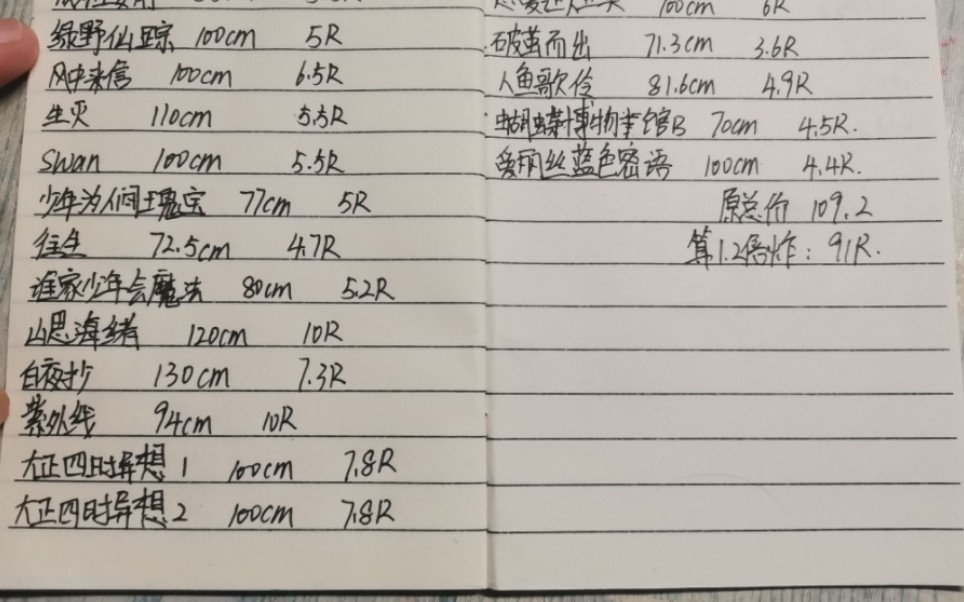 绿野仙踪 100cm 5R
风中来信 100cm 6.5R
生灭 110cm 5.5R
swan 100cm 5.5R
少年为人间瑰宝 77cm 5R
往生 72.5cm 4.7R
谁家少年会魔法 80cm 5.2R
山思海绪 120cm 10R
白夜抄 130cm 7.3R
紫外线 94cm 10R
大正四时异想 1 100cm 7.8R
大正四时异想 2 100cm 7.8R
100cm 6R
破茧而出 71.3cm 3.6R
人鱼歌伶 81.6cm 4.9R
蝴蝶博物馆B 70cm 4.5R.
爱丽丝蓝色密语 100cm 4.4R.
原总价 109.2
算1.2倍炸: 91R.